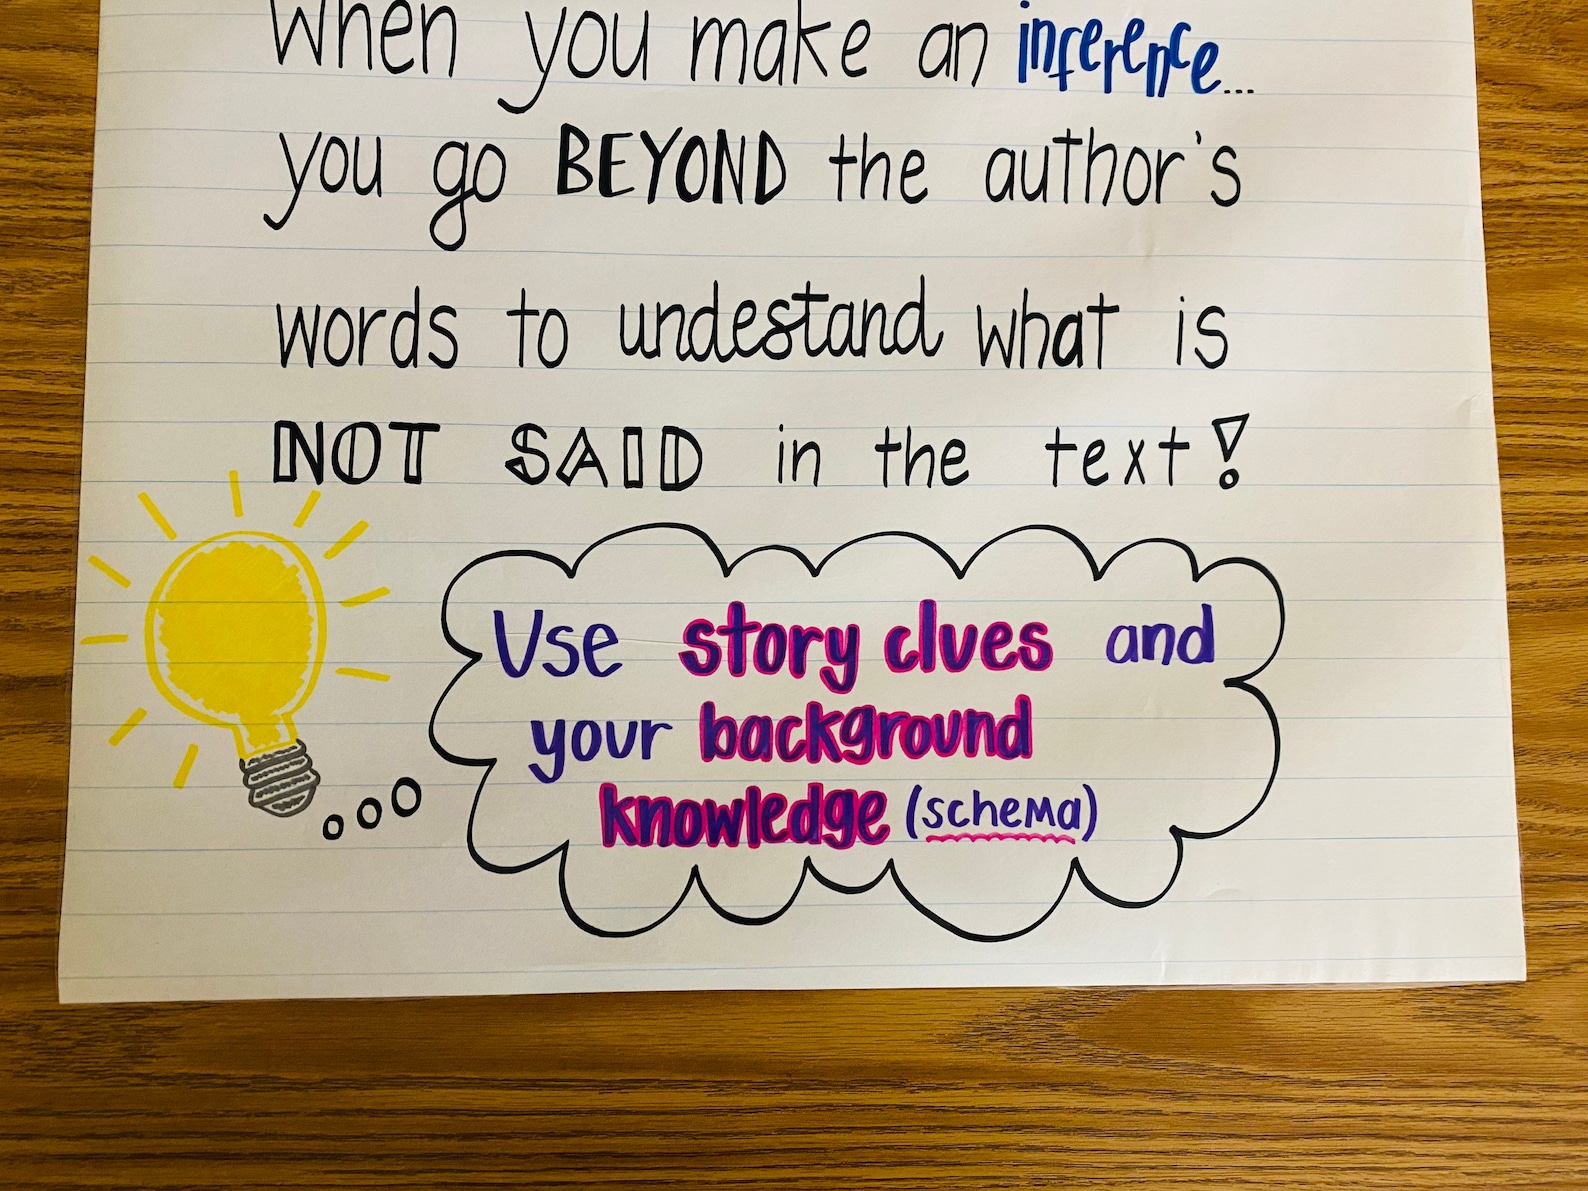 When you make an inference...
you go BEYOND the author's
words to undestand what is
NOT SAID in the text!
Use story clues and
your background
knowledge (schema)